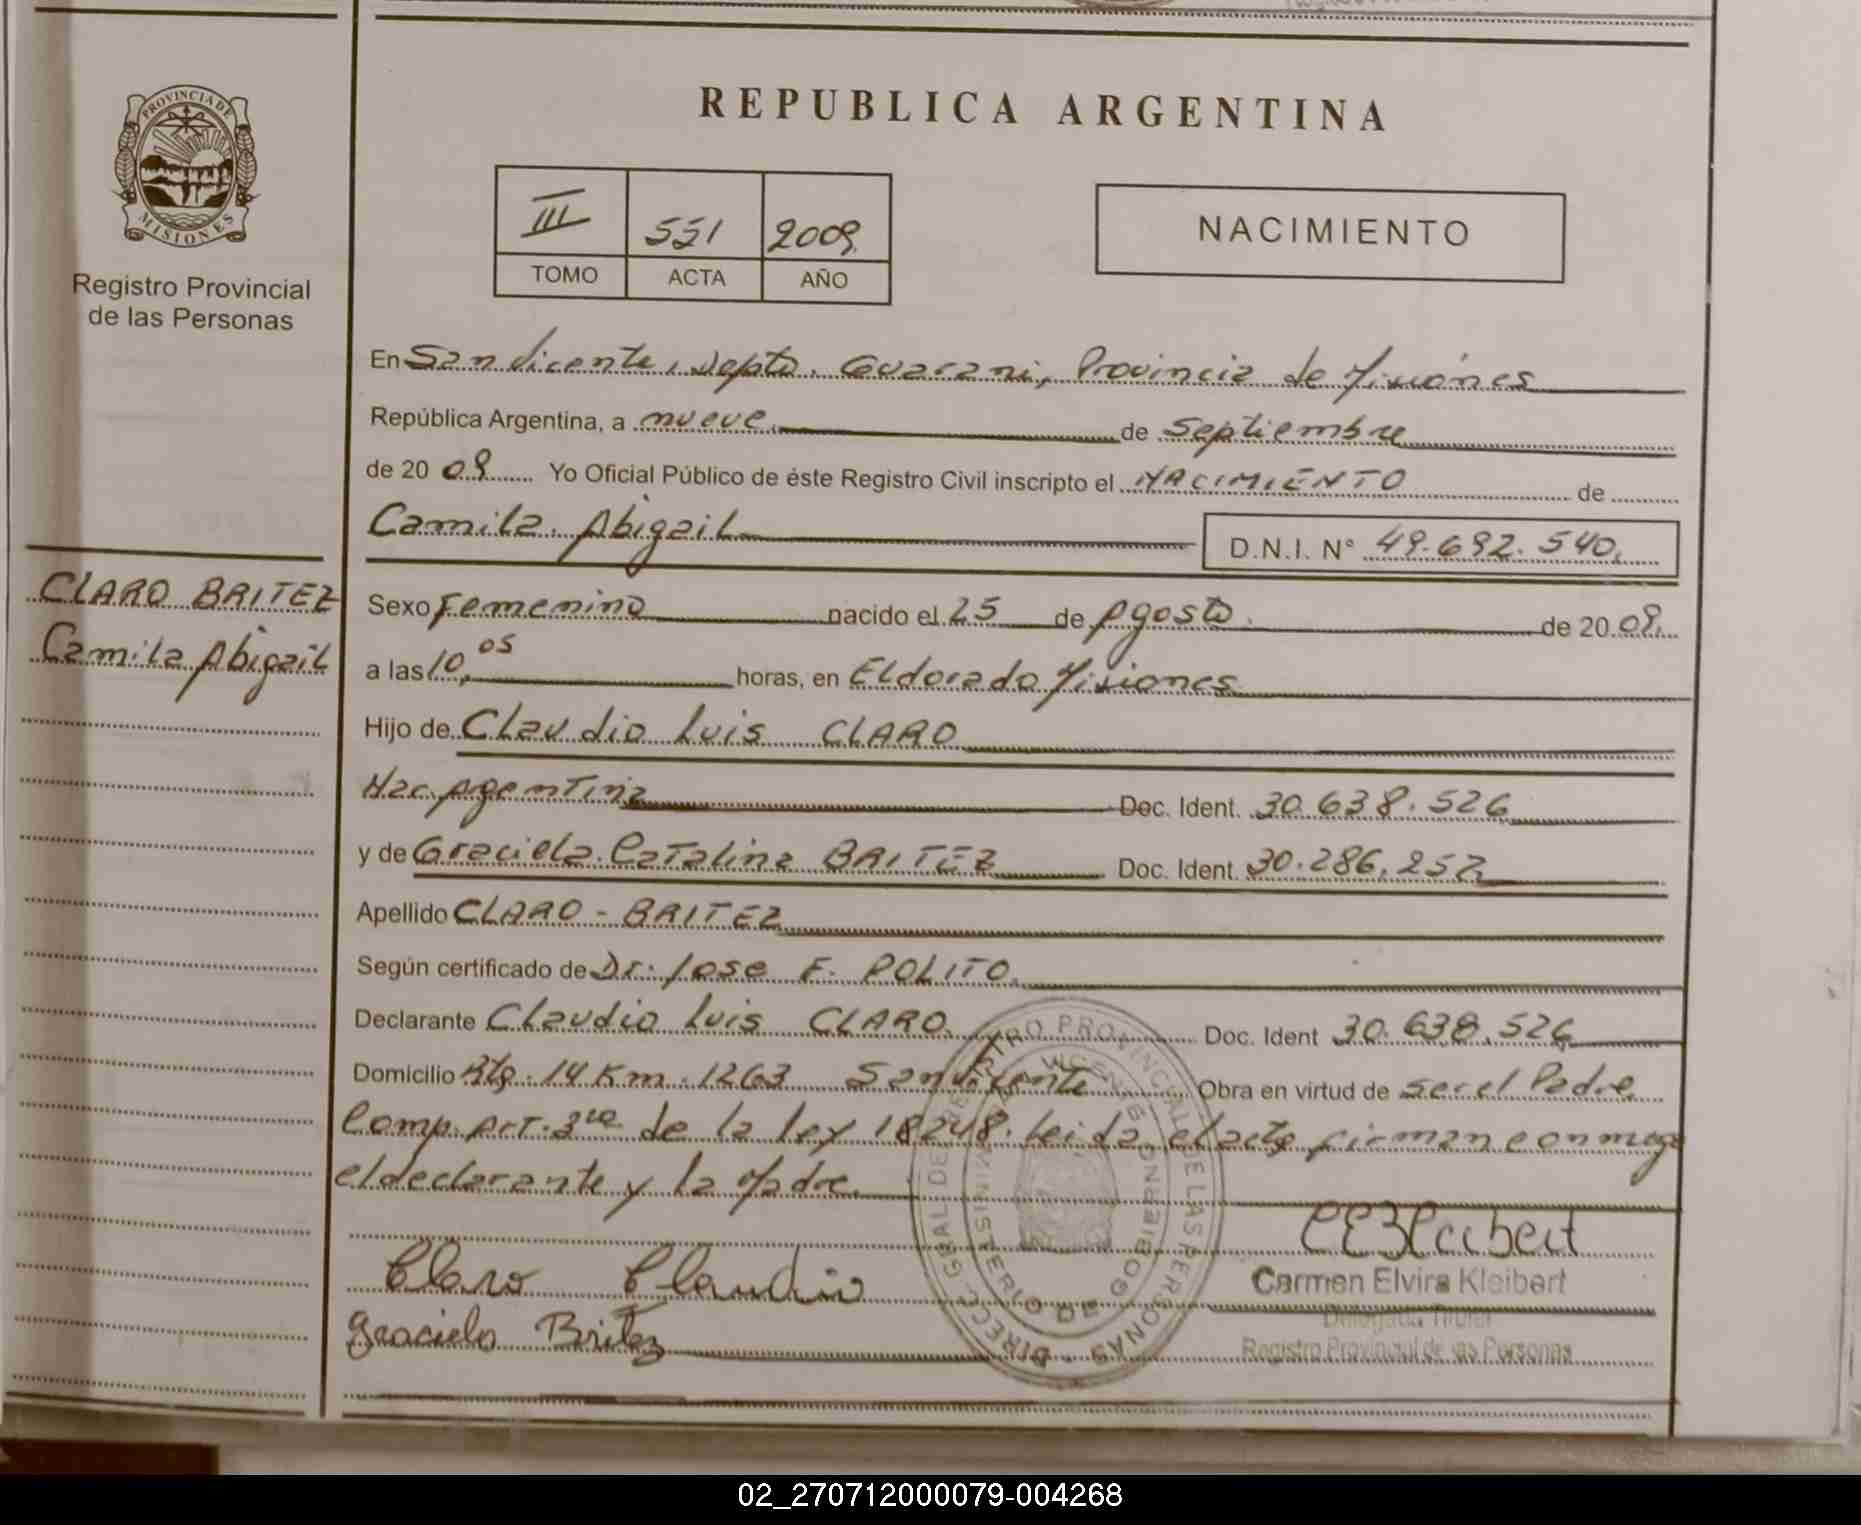 PROVINCIA DE
MISIONES
Registro Provincial
de las Personas
CLARO BRITEZ
Camila Abigail
REPUBLICA ARGENTINA
III 551 2009
TOMO ACTA AÑO
NACIMIENTO
En San Vicente, Depto. Guarani, Provincia de Misiónes
República Argentina, a nueve de septiembre
de 20 09 Yo Oficial Público de éste Registro Civil inscripto el NACIMIENTO de
Camila Abigail D.N.I. N° 49.692.540.
Sexo Femenino nacido el 25 de Agosto de 20 09.
a las 10,05 horas, en Eldorado Misiones
Hijo de Claudio Luis CLARO
Nac. Argentina Doc. Ident. 30.638.526
y de Graciela Catalina BRITEZ Doc. Ident. 30.286.252
Apellido CLARO - BRITEZ
Según certificado de Dr. Jose F. POLITO.
Declarante Claudio Luis CLARO. Doc. Ident 30.638.526
Domicilio Rta. 14 Km. 1263 San Vicente Obra en virtud de ser el Padre
Comp. Art. 3ro de la ley 18248. Leida el acta firman conmigo
el declarante y la Madre.
Claro Claudio
Graciela Britez
Carmen Elvira Kleibert
Delegada Titular
Registro Provincial de las Personas
DIRECC. GRAL DE REGISTRO PROVINCIAL DE LAS PERSONAS
MINISTERIO DE GOBIERNO
02_270712000079-004268